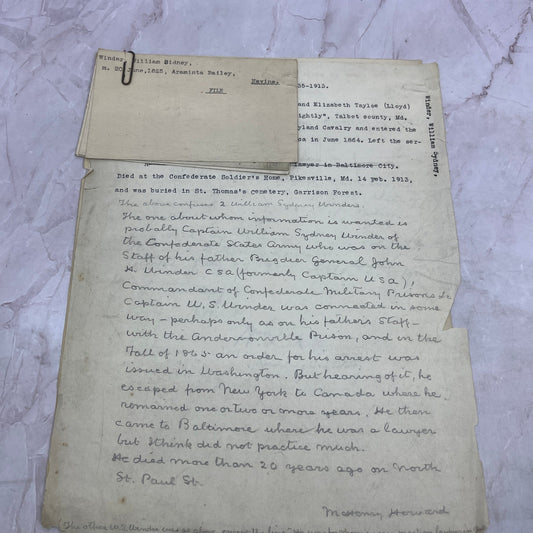 Winder, William Sidney.
m. 20 June,1825, Araminta Bailey.
Havine.
FILE
Winder, William Sydney,
35-1913.
and Elizabeth Tayloe (Lloyd)
ightly", Talbot county, Md.
yland Cavalry and entered the
in June 1864. Left the ser-
Lawyer in Baltimore City.
Died at the Confederate Soldier's Home, Pikesville, Md. 14 Feb. 1913,
and was buried in St. Thomas's cemetery, Garrison Forest.
The above confuses 2 William Sydney Winders.
The one about whom information is wanted is
probably Captain William Sydney Winder of
the Confederate States Army who was on the
Staff of his father Brigadier General John
H. Winder CSA (formerly Captain USA),
Commandant of Confederate Military Prisons &c
Captain W. S. Winder was connected in some
way – perhaps only as on his father's Staff –
with the Andersonville Prison, and in the
Fall of 1865 an order for his arrest was
issued in Washington. But hearing of it, he
escaped from New York to Canada where he
remained one or two or more years. He then
came to Baltimore where he was a lawyer
but I think did not practice much.
He died more than 20 years ago on North
St. Paul St.
McHenry Howard
(The other W. S. Winder